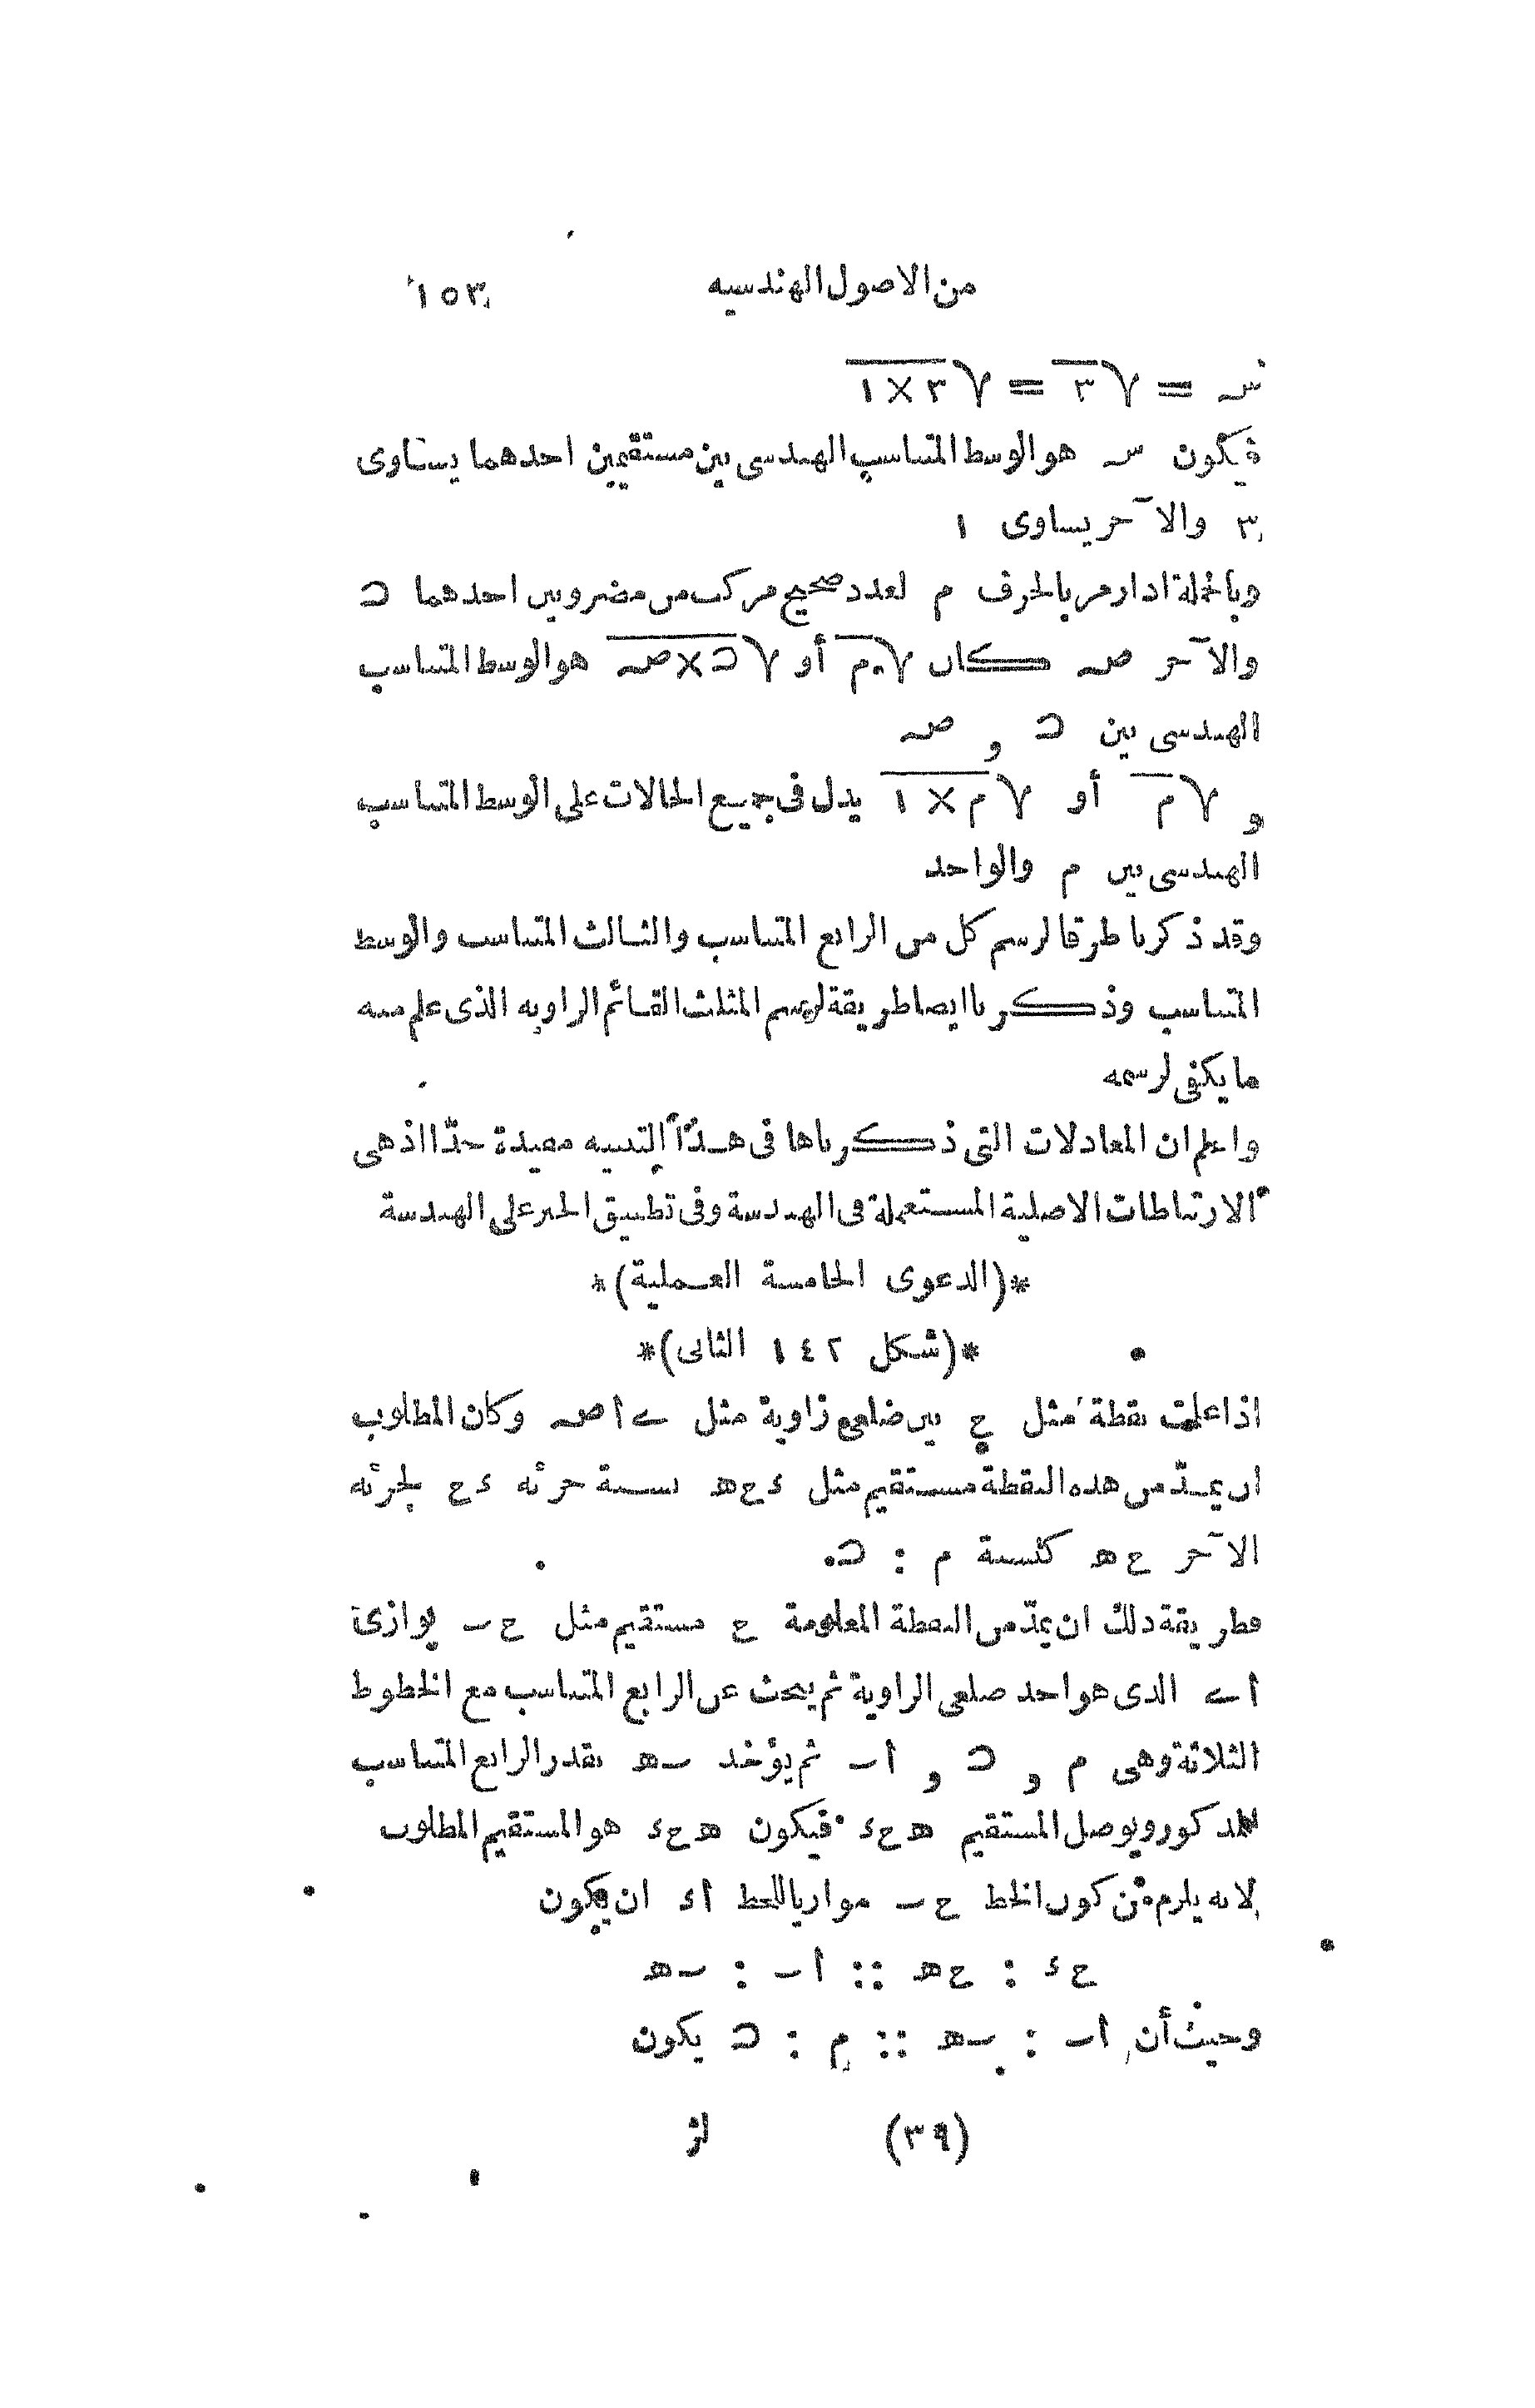 من الاصول الهندسيه ١٥٣
س = √٣ = √٣×١
فيكون س هو الوسط المتناسب الهندسى بين مستقيمين احدهما يساوى
٣ والآخر يساوى ١
وبالجملة اذا رمز بالحرف م لعدد صحيح مركب من مضروبين احدهما ں
والآخر صـ كان √م أو √ں×صـ هو الوسط المتناسب
الهندسى بين ں و صـ
و √م أو √م×١ يدل فى جميع الحالات على الوسط المتناسب
الهندسى بين م والواحد
وقد ذكرنا طرقا لرسم كل من الرابع المتناسب والثالث المتناسب والوسط
المتناسب وذكرنا ايضا طريقة لرسم المثلث القائم الزاويه الذى علم منه
ما يكفى لرسمه
واعلم ان المعادلات التى ذكرناها فى هذا التنبيه مفيدة جدّا اذ هى
الارتباطات الاصلية المستعملة فى الهندسة وفى تطبيق الجبر على الهندسة
*(الدعوى الخامسة العملية)*
*(شكل ١٤٢ الثانى)*
اذا علمت نقطة مثل ح بين ضلعى زاوية مثل ے أ صـ وكان المطلوب
ان يمدّ من هذه النقطة مستقيم مثل ءحھ نسبة جزئه ءح لجزئه
الآخر حھ كنسبة م : ں
فطريقة ذلك ان يمدّ من النقطة المعلومة ح مستقيم مثل حٮ يوازى
أے الذى هو احد ضلعى الزاوية ثم يبحث عن الرابع المتناسب مع الخطوط
الثلاثة وهى م و ں و أٮ ثم يؤخذ ٮھ بقدر الرابع المتناسب
المذكور ويوصل المستقيم ھحء فيكون ھحء هو المستقيم المطلوب
لانه يلزم من كون الخط حٮ موازيا للخط أء ان يكون
حء : حھ :: أٮ : ٮھ
وحيث أن أٮ : ٮھ :: م : ں يكون
(٣٩) لژ